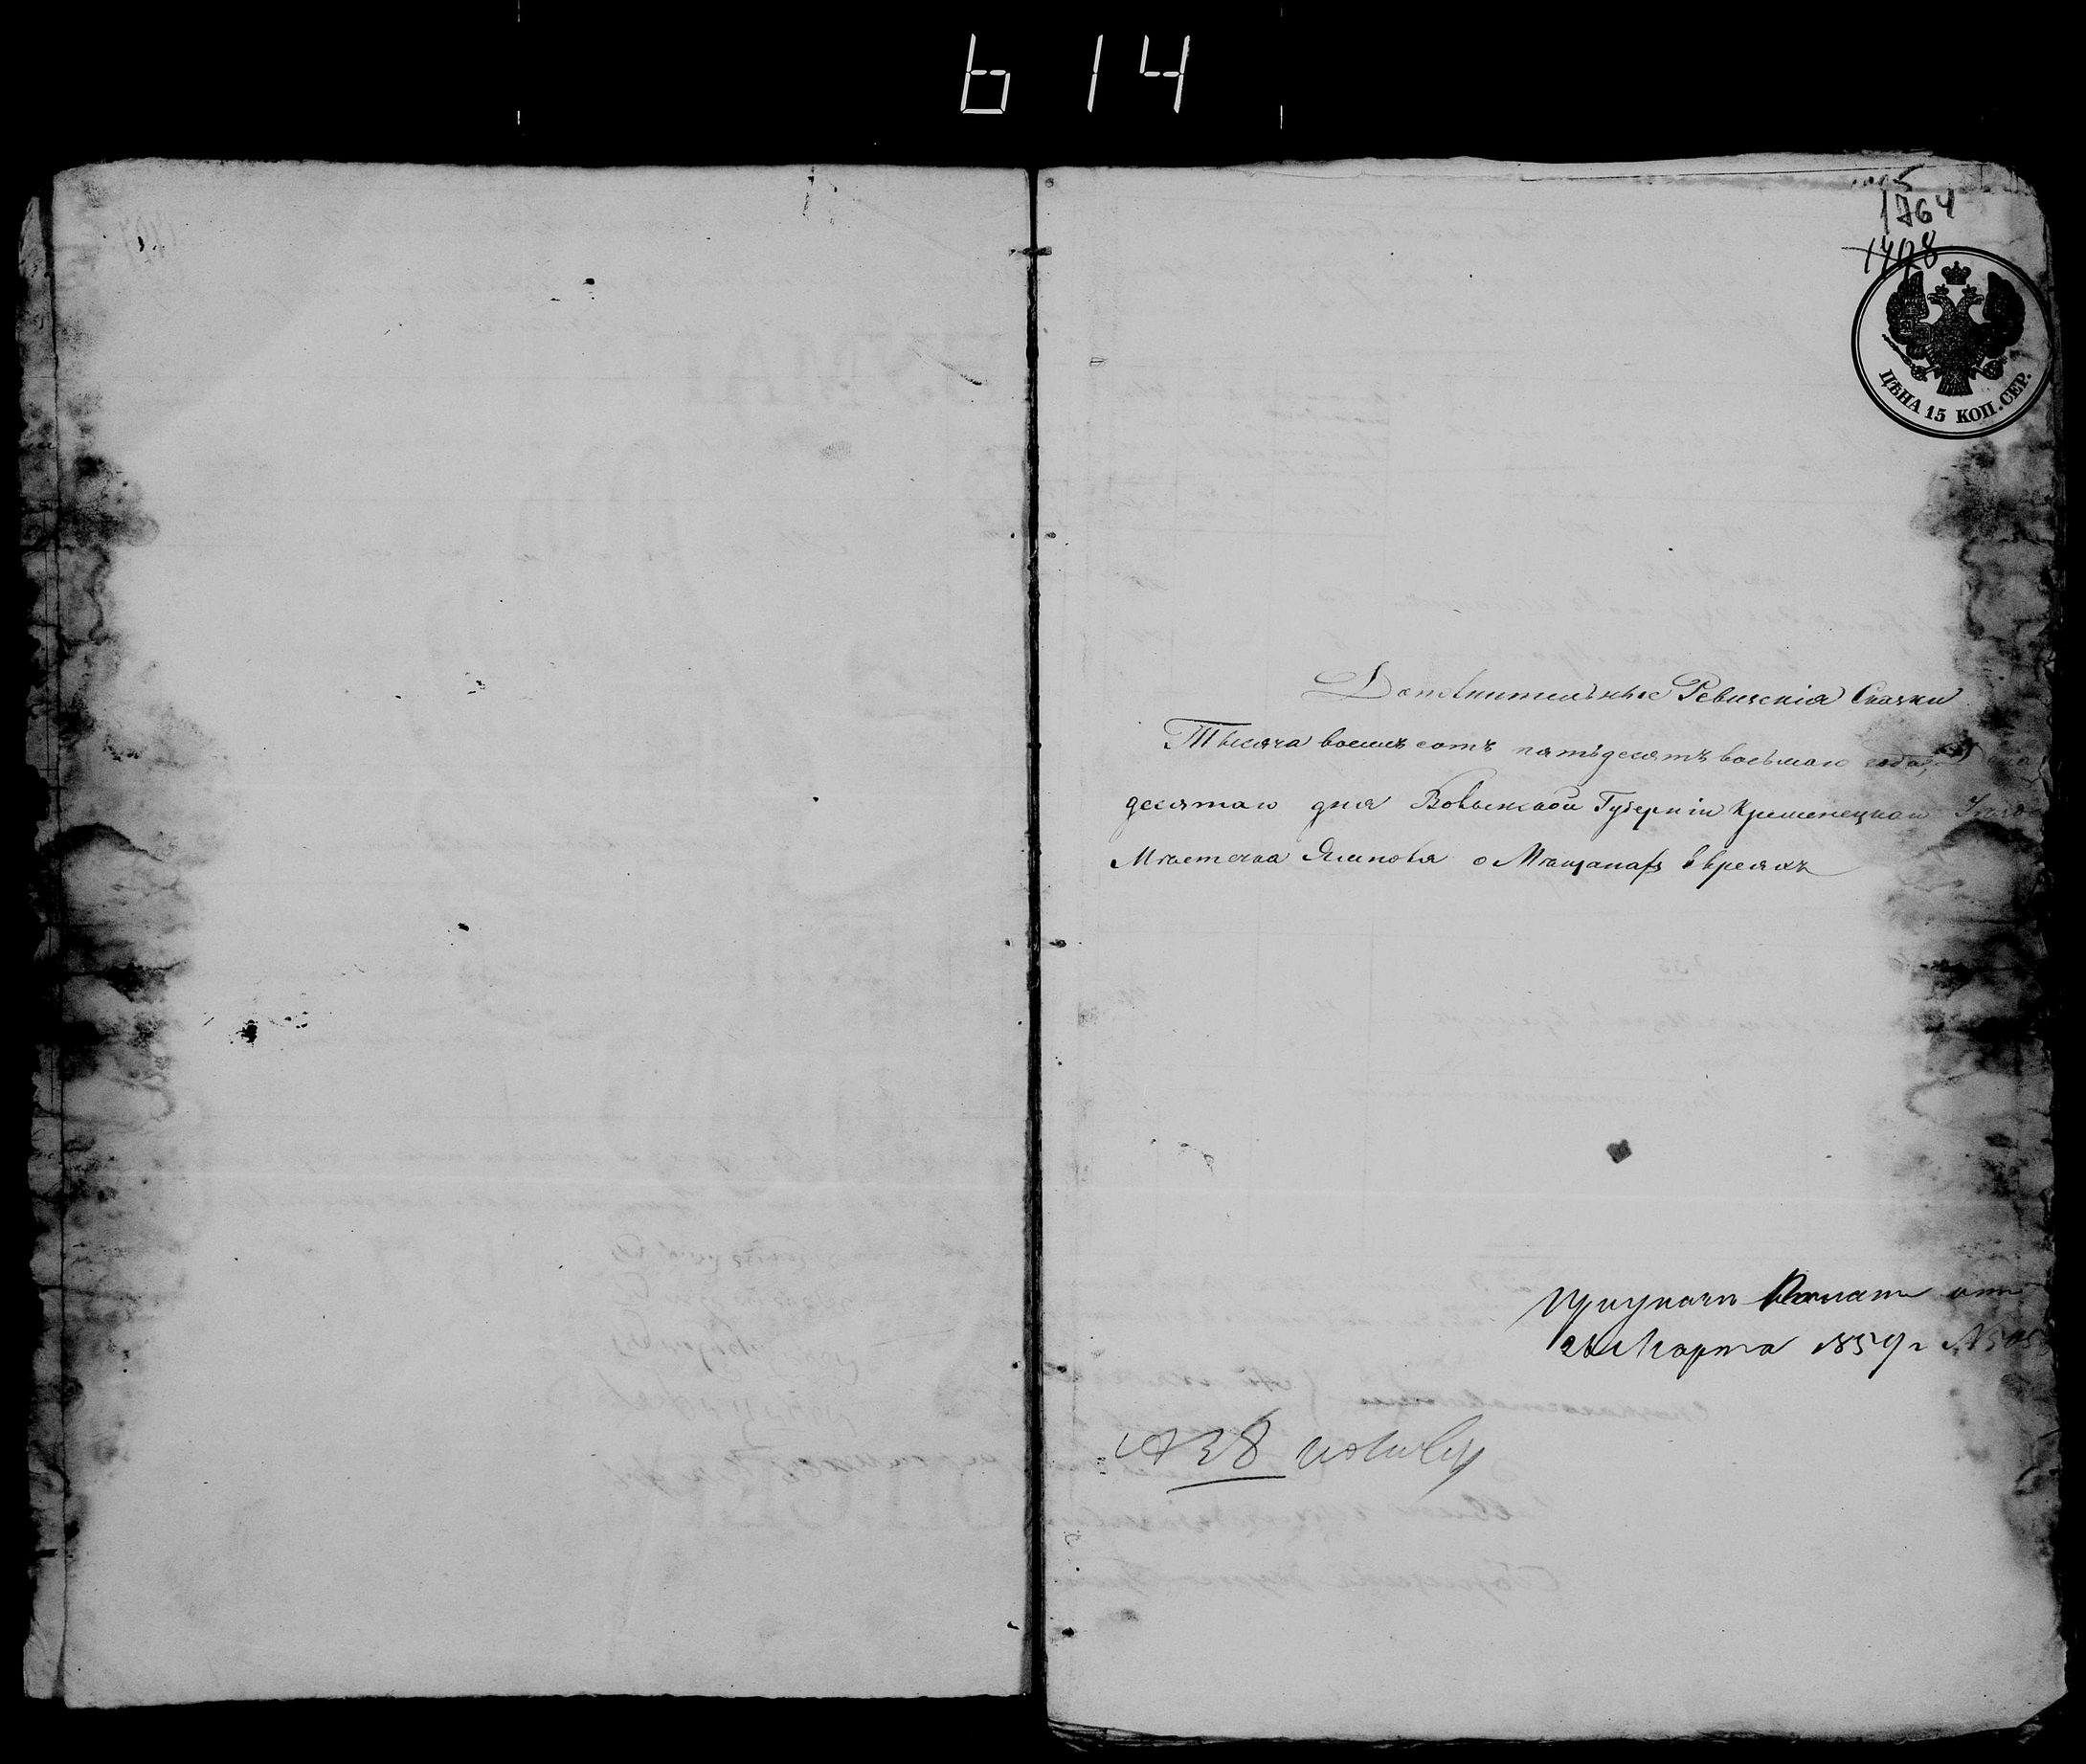 614
1764
1498
ЦѢНА 15 КОП. СЕР.
Дополнительные Ревизскія Сказки
Тысяча восемъ сотъ пятьдесятъ восьмаго года
десятаго дня Волынской Губерніи Кременецкаго Уѣзда
Мѣстечка Ямполя о Мѣщанахъ Евреяхъ
отъ
Марта 1859 г №